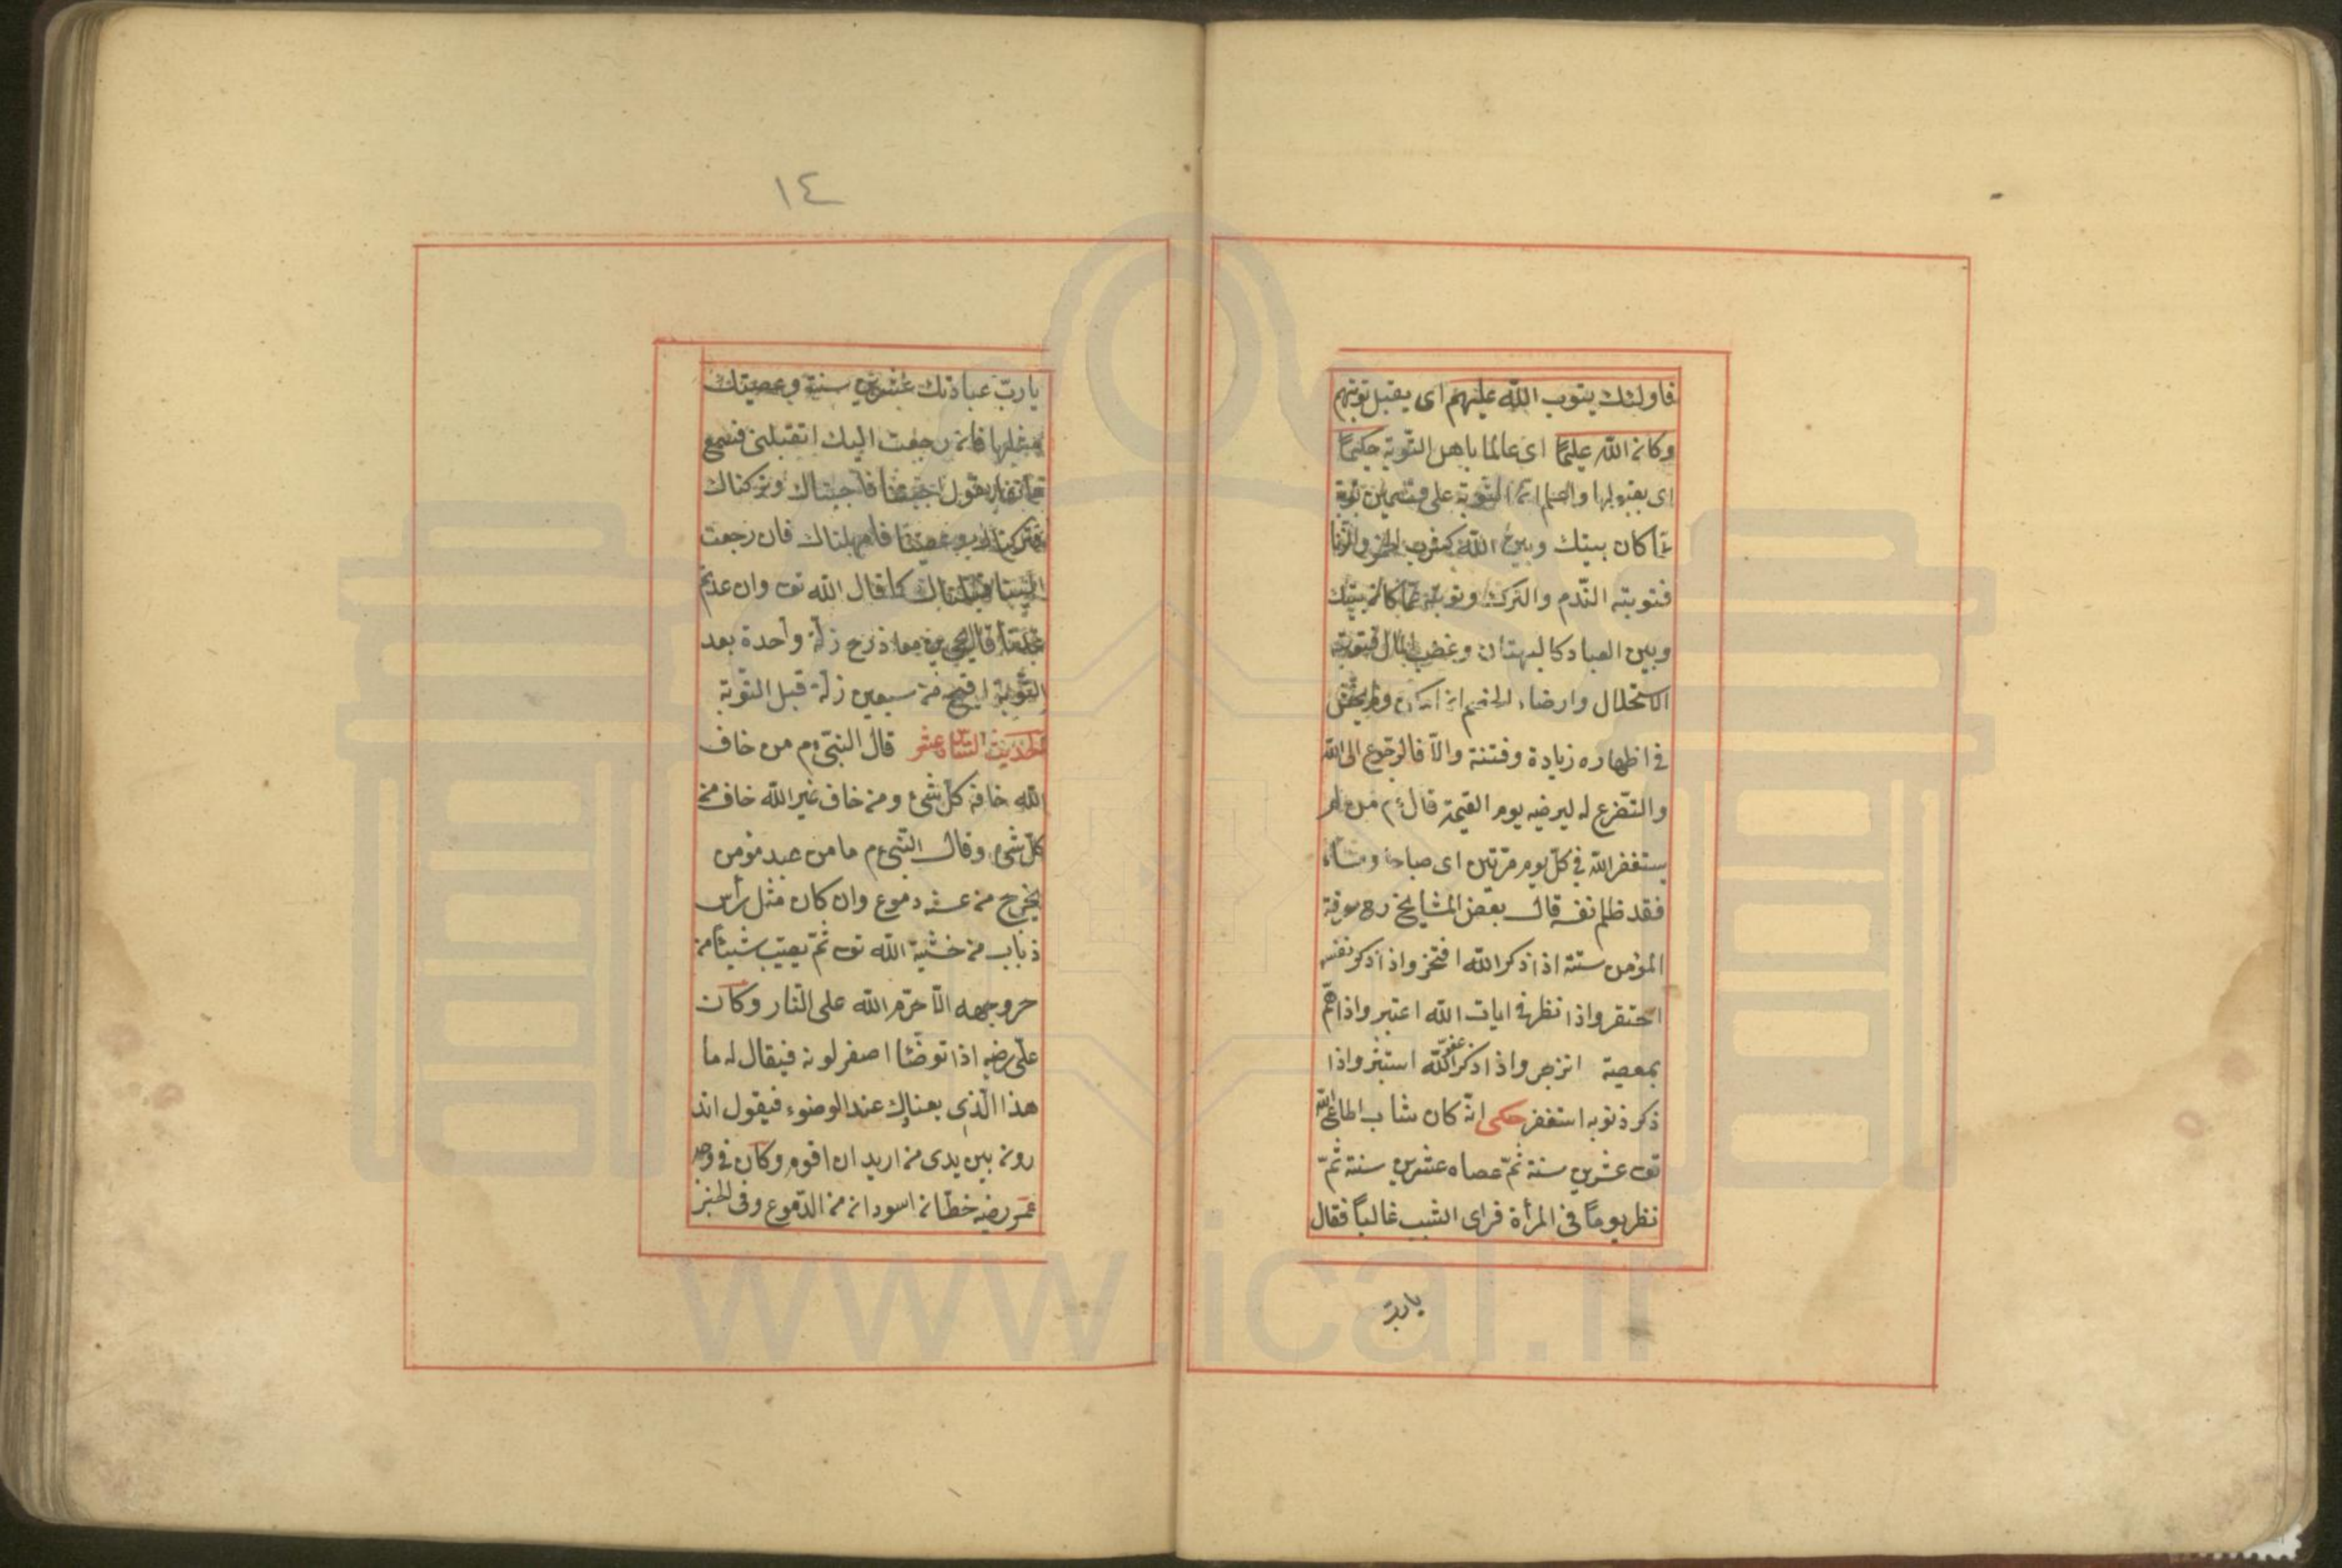 فاولئك يتوب الله عليهم اى يقبل توبتهم
وكان الله عليمًا اى عالما باهل التّوبة حكيمًا
اى بقبولها واعلم انّ التوبة على قسمين توبة
عمّا كان بينك وبين الله كشرب الخمر والزّنا
فتوبته النّدم والترك وتوبة عمّا كان بينك
وبين العباد كالبهتان وغصب المال فتوبته
الاستحلال وارضاء الخصم ان امكن ولم يخش
فى اظهاره زيادة وفتنة والّا فالرّجوع الى الله
والتّضرع له ليرضيه يوم القيمة قال ءم من لم
يستغفر الله فى كلّ يوم مرّتين اى صباحا ومساء
فقد ظلم نفسه قال بعض المشايخ رح
المؤمن ستة اذا ذكر الله افتخر واذا ذكر نفسه
احتقر واذا نظر فى ايات الله اعتبر واذا همّ
بمعصية انزجر واذا ذكر عفو الله استبشر واذا
ذكر ذنوبه استغفر حكى انّه كان شاب اطاع الله
تعـ عشرين سنة ثمّ عصاه عشرين سنة ثمّ
نظر يومًا فى المرأة فراى الشيب غالبًا فقال
يا ربّ
١٤
يا ربّ عبادتك عشرين سنة وعصيتك
مثلها فان رجعت اليك اتقبلنى فسمع
يقول احببتنا فاجبناك وتركتنا
فتركناك وعصيتنا فامهلناك فان رجعت
الينا قبلناك كما قال الله تعـ وان عدتم
عدنا قال يحيى بن معاذ رح زلّة واحدة بعد
التّوبة اقبح من سبعين زلّة قبل التّوبة
الحديث عشر قال النبىّ ءم من خاف
الله خافه كلّ شئ ومن خاف غير الله خاف من
كلّ شئ وقال النبىّ ءم ما من عبد مؤمن
يخرج من دموع وان كان مثل رأس
ذباب من خشية الله تعـ ثمّ يصيب شيئا من
حر وجهه الّا حرّم الله على النّار وكان
علىّ رضه اذا توضّئا اصفر لونه فيقال له ما
هذا الّذى عند الوضوء فيقول اتد
رون بين يدى من اريد ان اقوم وكان فى وجه
عمر رضه خطّان اسودان من الدّموع وفى الخبر
www.ical.ir